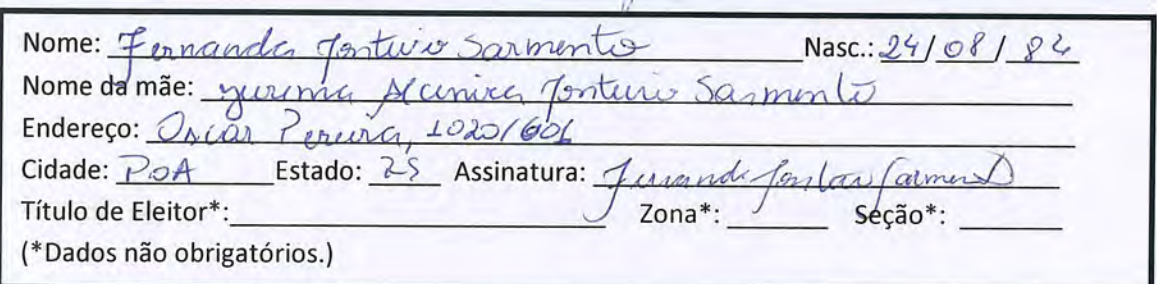 Nome: Fernanda Monteiro Sarmento Nasc.: 24/08/82
Nome da mãe: Jurema Monteiro Sarmento
Endereço: Oscar Pereira, 1020/601
Cidade: POA Estado: RS Assinatura: Fernanda Sarmento
Título de Eleitor*: Zona*: Seção*:
(*Dados não obrigatórios.)